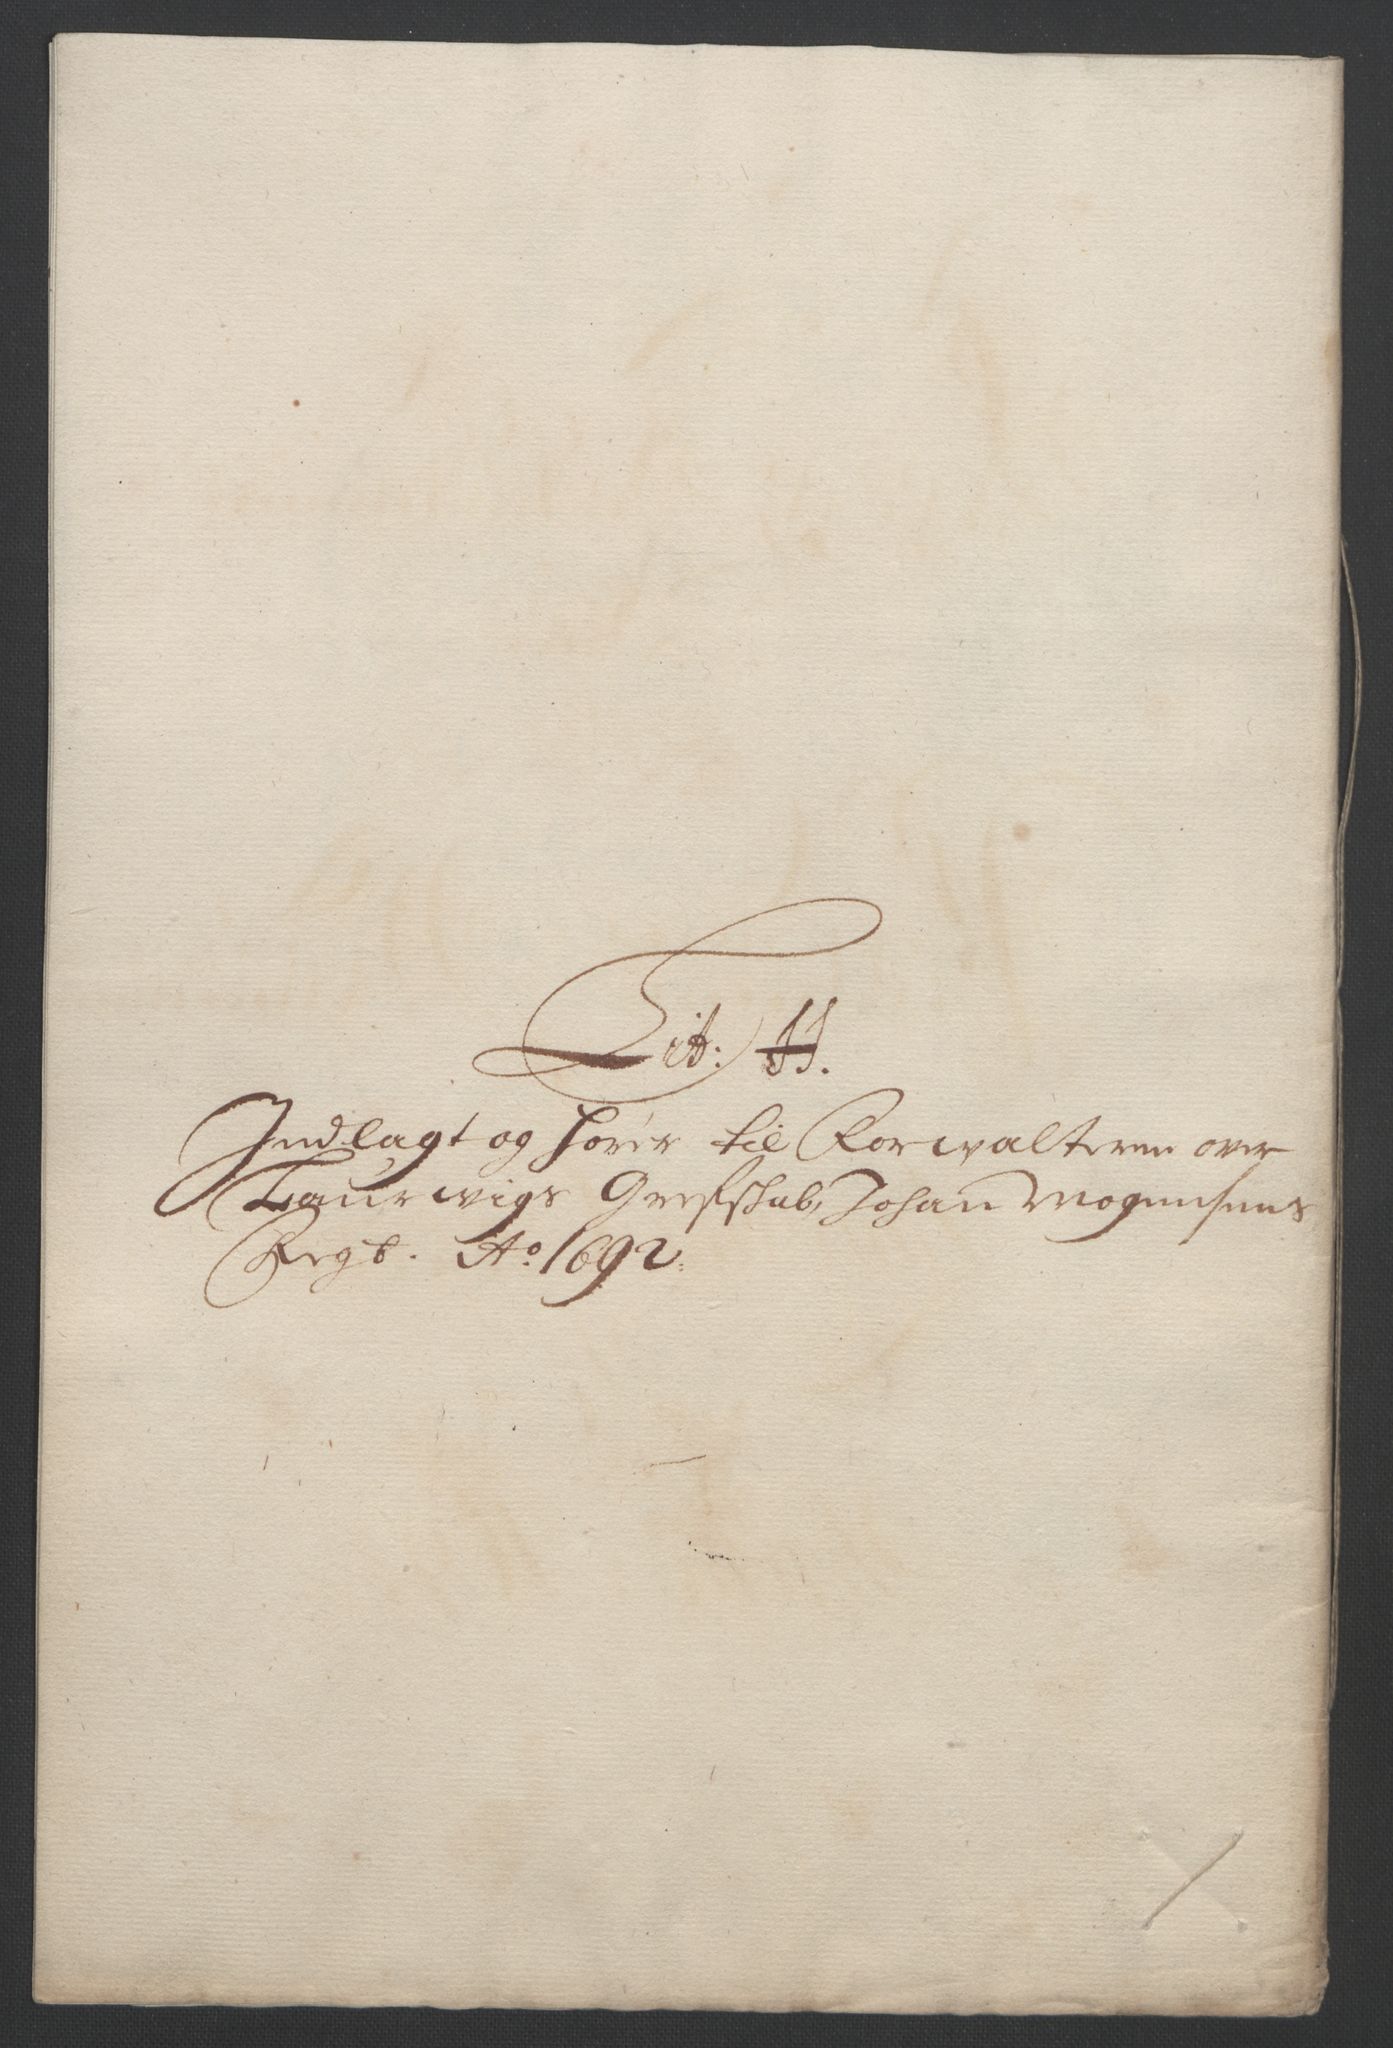 Lit: H.
Indlagt og hører til Forwalteren over
Laurwigs Grefskab, Johan Mogensens
Regb. Ao. 1692.